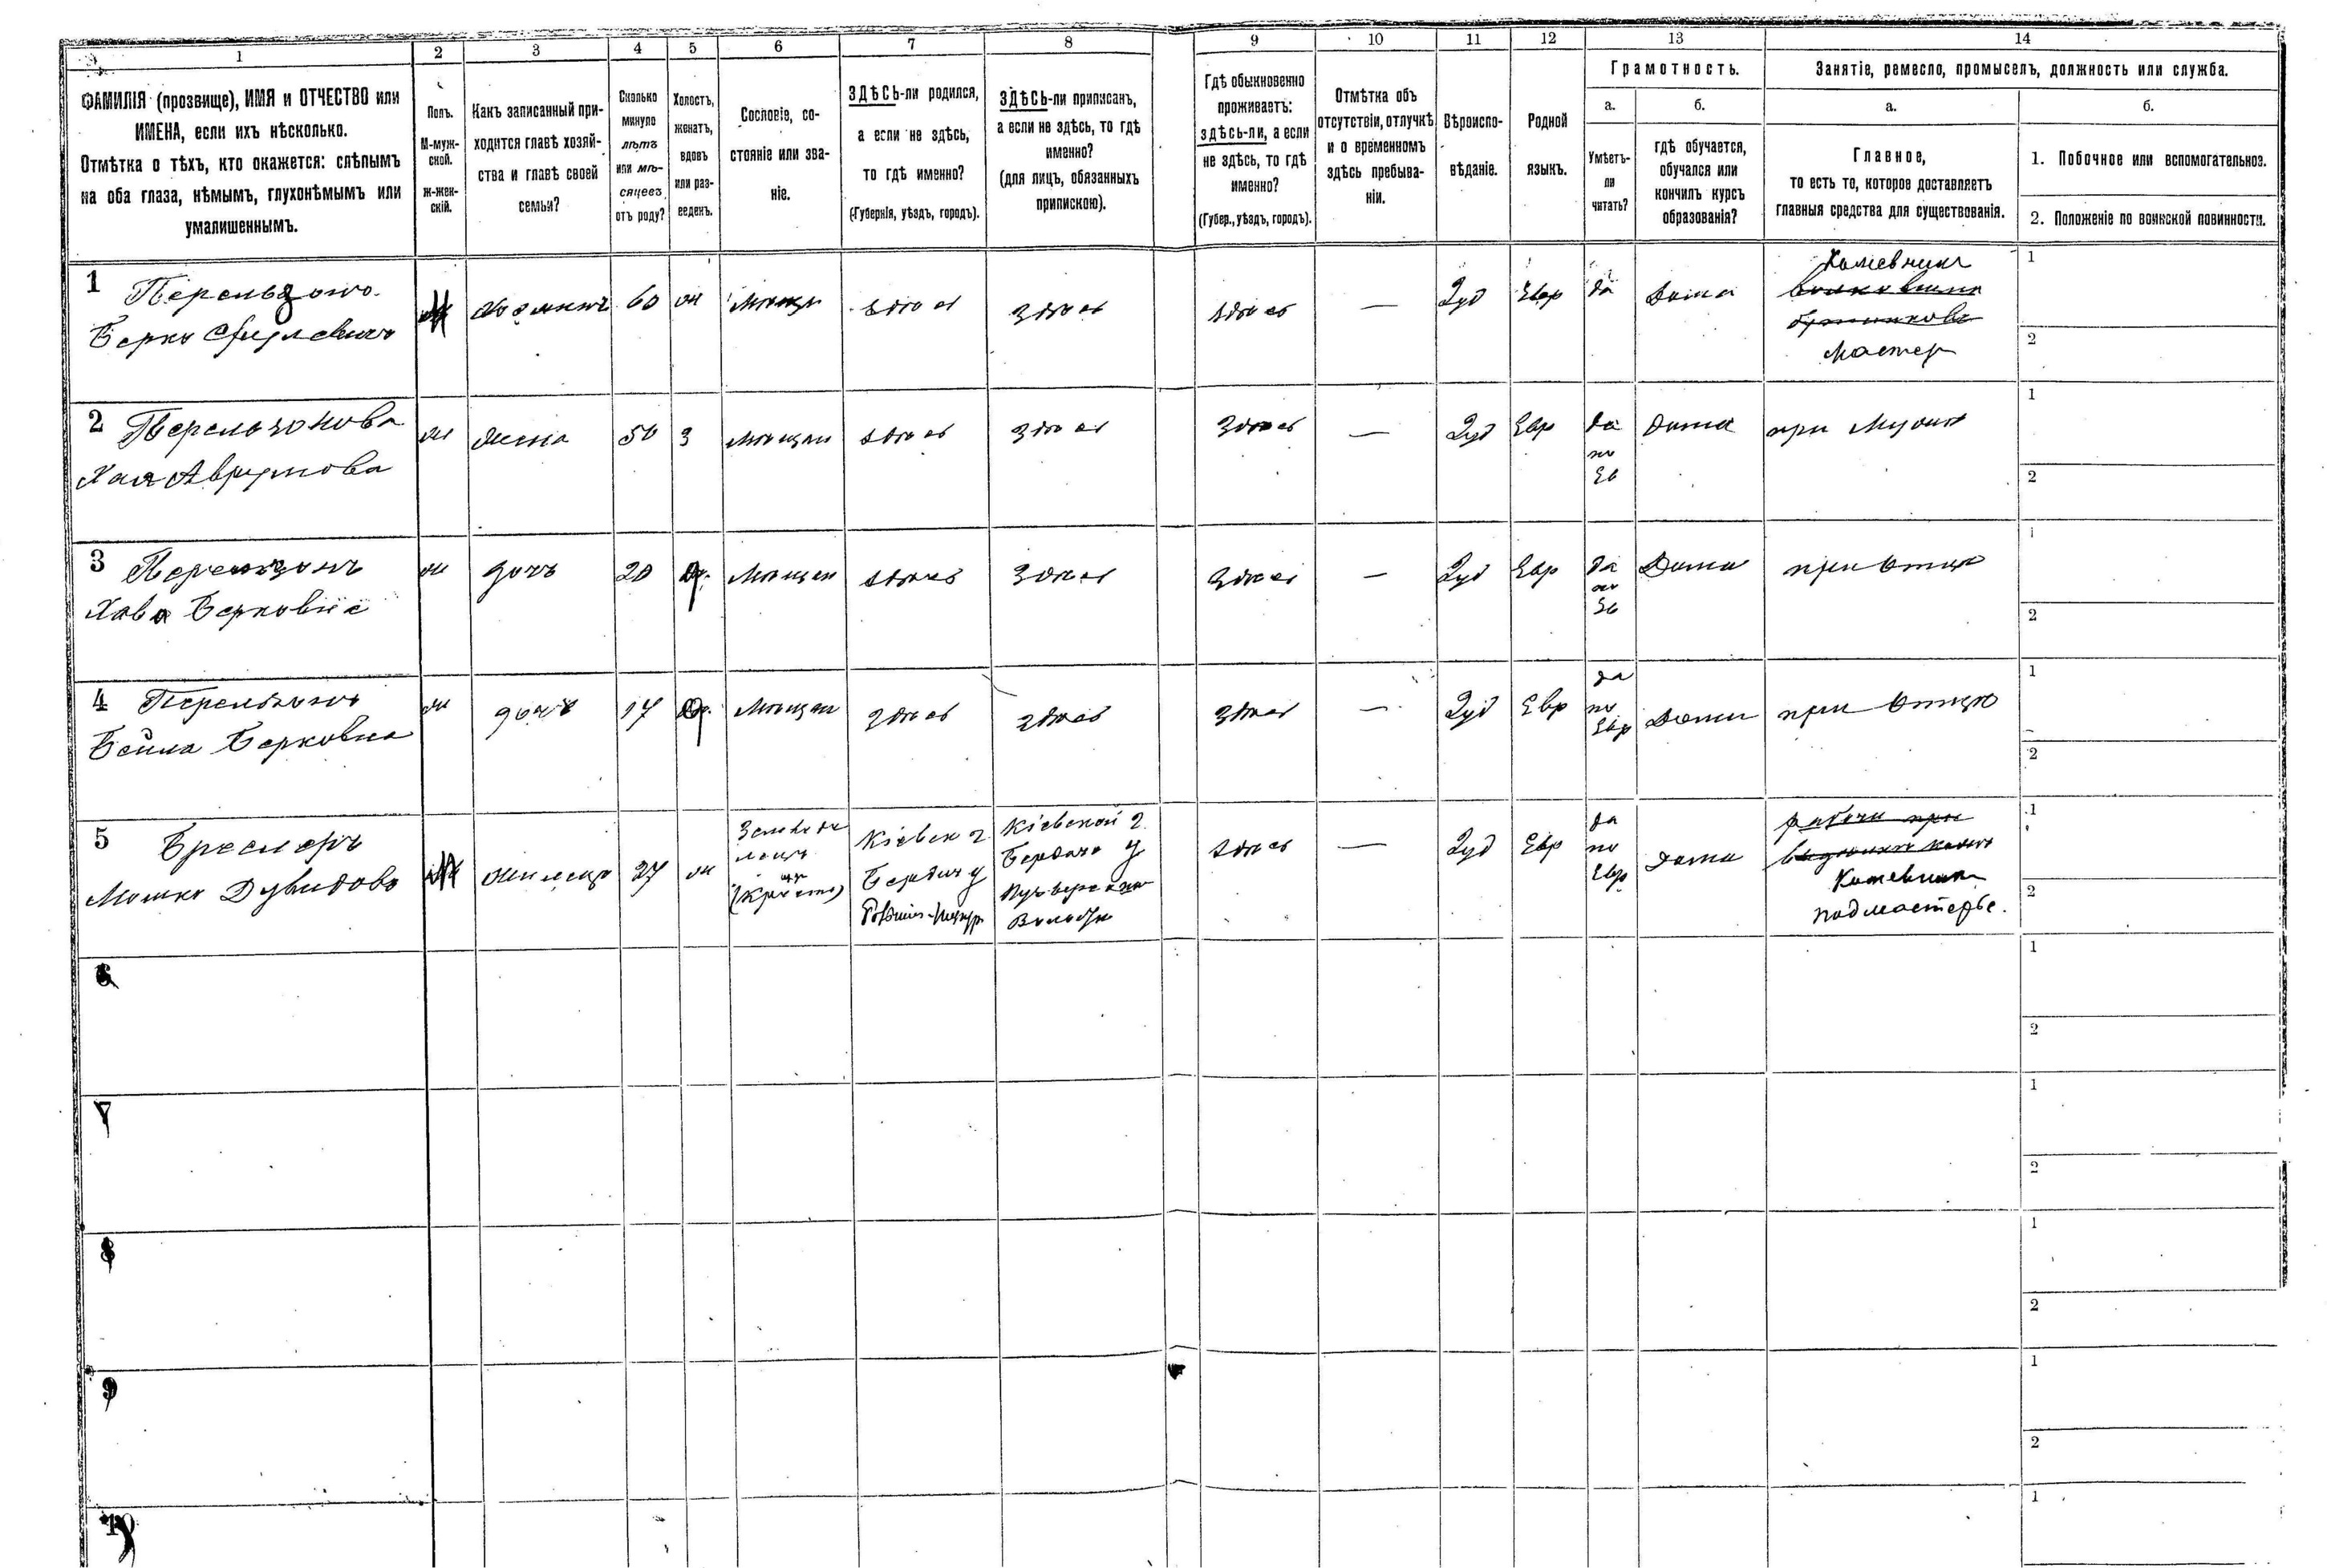 1 2 3 4 5 6 7 8 9 10 11 12 13 14
ФАМИЛІЯ (прозвище), ИМЯ и ОТЧЕСТВО или
ИМЕНА, если ихъ нѣсколько.
Отмѣтка о тѣхъ, кто окажется: слѣпымъ
на оба глаза, нѣмымъ, глухонѣмымъ или
умалишеннымъ.
Полъ.
М-муж-
ской.
Ж-жен-
скій.
Какъ записанный при-
ходится главѣ хозяй-
ства и главѣ своей
семьи?
Сколько
минуло
лѣтъ
или мѣ-
сяцевъ
отъ роду?
Холостъ,
женатъ,
вдовъ
или раз-
веденъ.
Сословіе, со-
стояніе или зва-
ніе.
ЗДѢСЬ-ли родился,
а если не здѣсь,
то гдѣ именно?
(Губернія, уѣздъ, городъ).
ЗДѢСЬ-ли приписанъ,
а если не здѣсь, то гдѣ
именно?
(для лицъ, обязанныхъ
припискою).
Гдѣ обыкновенно
проживаетъ:
здѣсь-ли, а если
не здѣсь, то гдѣ
именно?
(Губер., уѣздъ, городъ).
Отмѣтка объ
отсутствіи, отлучкѣ
и о временномъ
здѣсь пребыва-
ніи.
Вѣроиспо-
вѣданіе.
Родной
языкъ.
Грамотность.
а.
Умѣетъ-
ли
читать?
б.
гдѣ обучается,
обучался или
кончилъ курсъ
образованія?
Занятіе, ремесло, промыселъ, должность или служба.
а.
Главное,
то есть то, которое доставляетъ
главныя средства для существованія.
б.
1. Побочное или вспомогательное.
2. Положеніе по воинской повинности.
1 Перельзонъ
Берко
М
60
ж
здѣсь
здѣсь
здѣсь
—
Іуд
Евр
да
Дома
Кожевникъ
мастер
1
2
2 Перельзонова
Хая Аврумова
ж
жена
50
З
Мѣщан
здѣсь
здѣсь
здѣсь
—
Іуд
Евр
да
по
Ев
Дома
при Мужѣ
1
2
3 Перельзонъ
Хава Берковна
ж
дочь
20
Мѣщан
здѣсь
здѣсь
здѣсь
—
Іуд
Евр
да
по
Ев
Дома
при Отцѣ
1
2
4 Перельзонъ
Бейла Берковна
ж
дочь
17
Мѣщан
здѣсь
здѣсь
здѣсь
—
Іуд
Евр
да
по
Евр
Дома
при Отцѣ
1
2
5 Бреслеръ
Мошко Дувидовъ
М
жилецъ
27
ж
Кіевск г
Бердич у
Кіевской г.
Бердич у
здѣсь
—
Іуд
Евр
да
по
Евр
Дома
рабочи при
Кожевник
подмастерье.
1
2
6
1
2
7
1
2
8
1
2
9
1
2
10
1